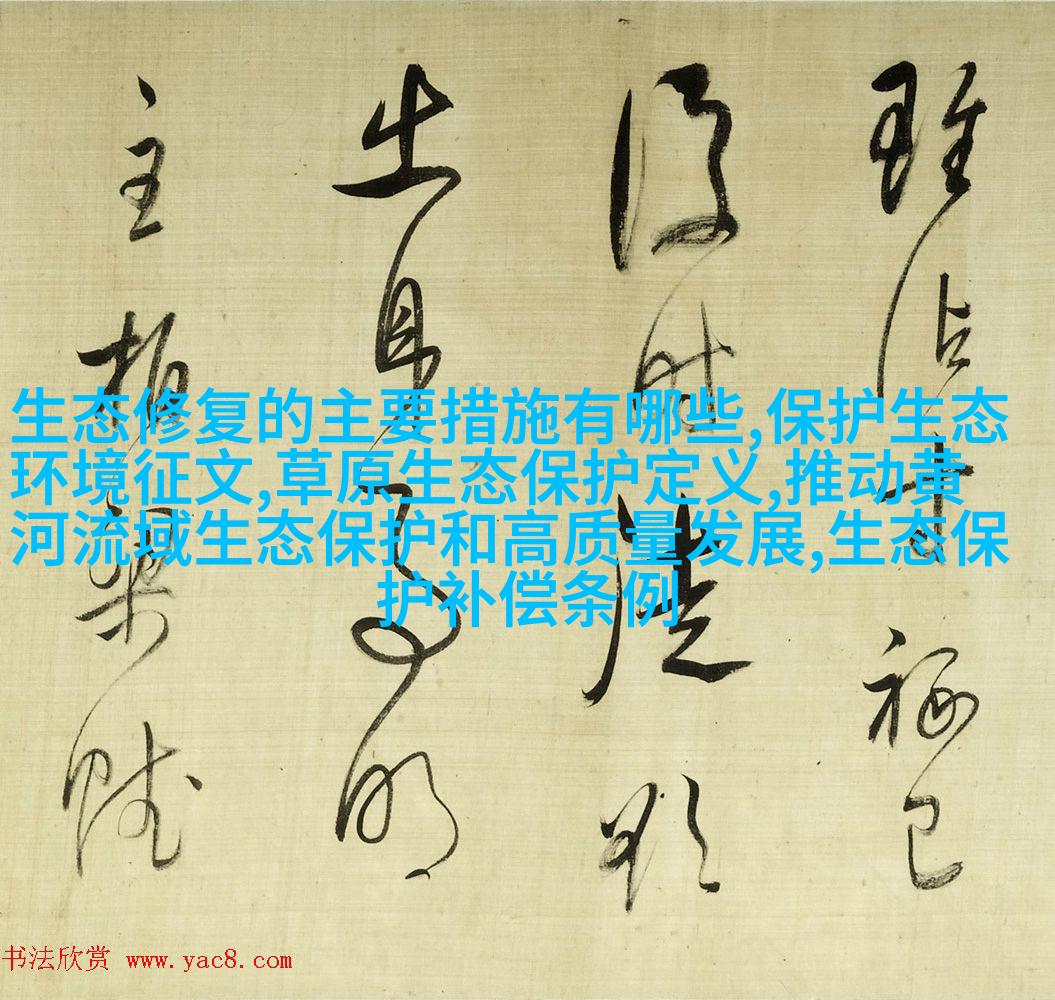 雖沾
後時
出身事明
主柏梁賦
生态修复的主要措施有哪些,保护生态
环境征文,草原生态保护定义,推动黄
河流域生态保护和高质量发展,生态保
护补偿条例
书法欣赏 www.yac8.com